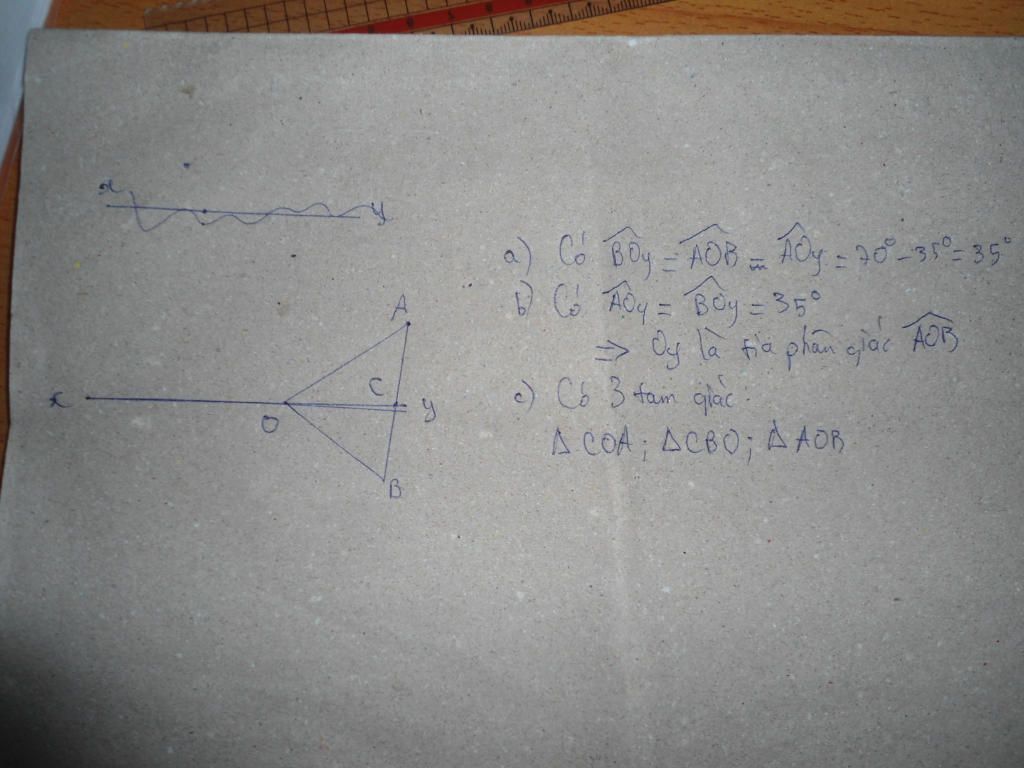 x y
a) Có BOy = AOB - AOy = 70° - 35° = 35°
b) Có AOy = BOy = 35°
⇒ Oy là tia phân giác AOB
c) Có 3 tam giác
Δ COA; ΔCBO; Δ AOB
A
x O C y
B